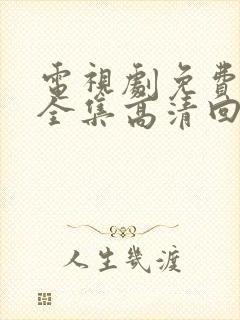 電視劇免費
全集高清回
人生幾渡